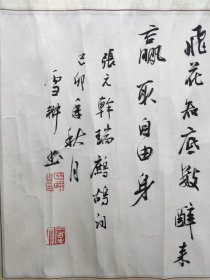 飛花知底數醉來
贏取自由身
張元幹瑞鷓鴣詞
己卯年秋月
雪琳书